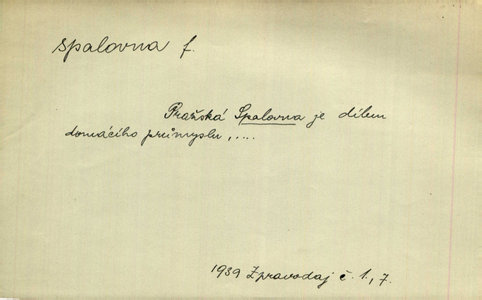 spalovna f.
Pražská Spalovna je dílem
domácího průmyslu, ....
1939 Zpravodaj č. 1., 7.